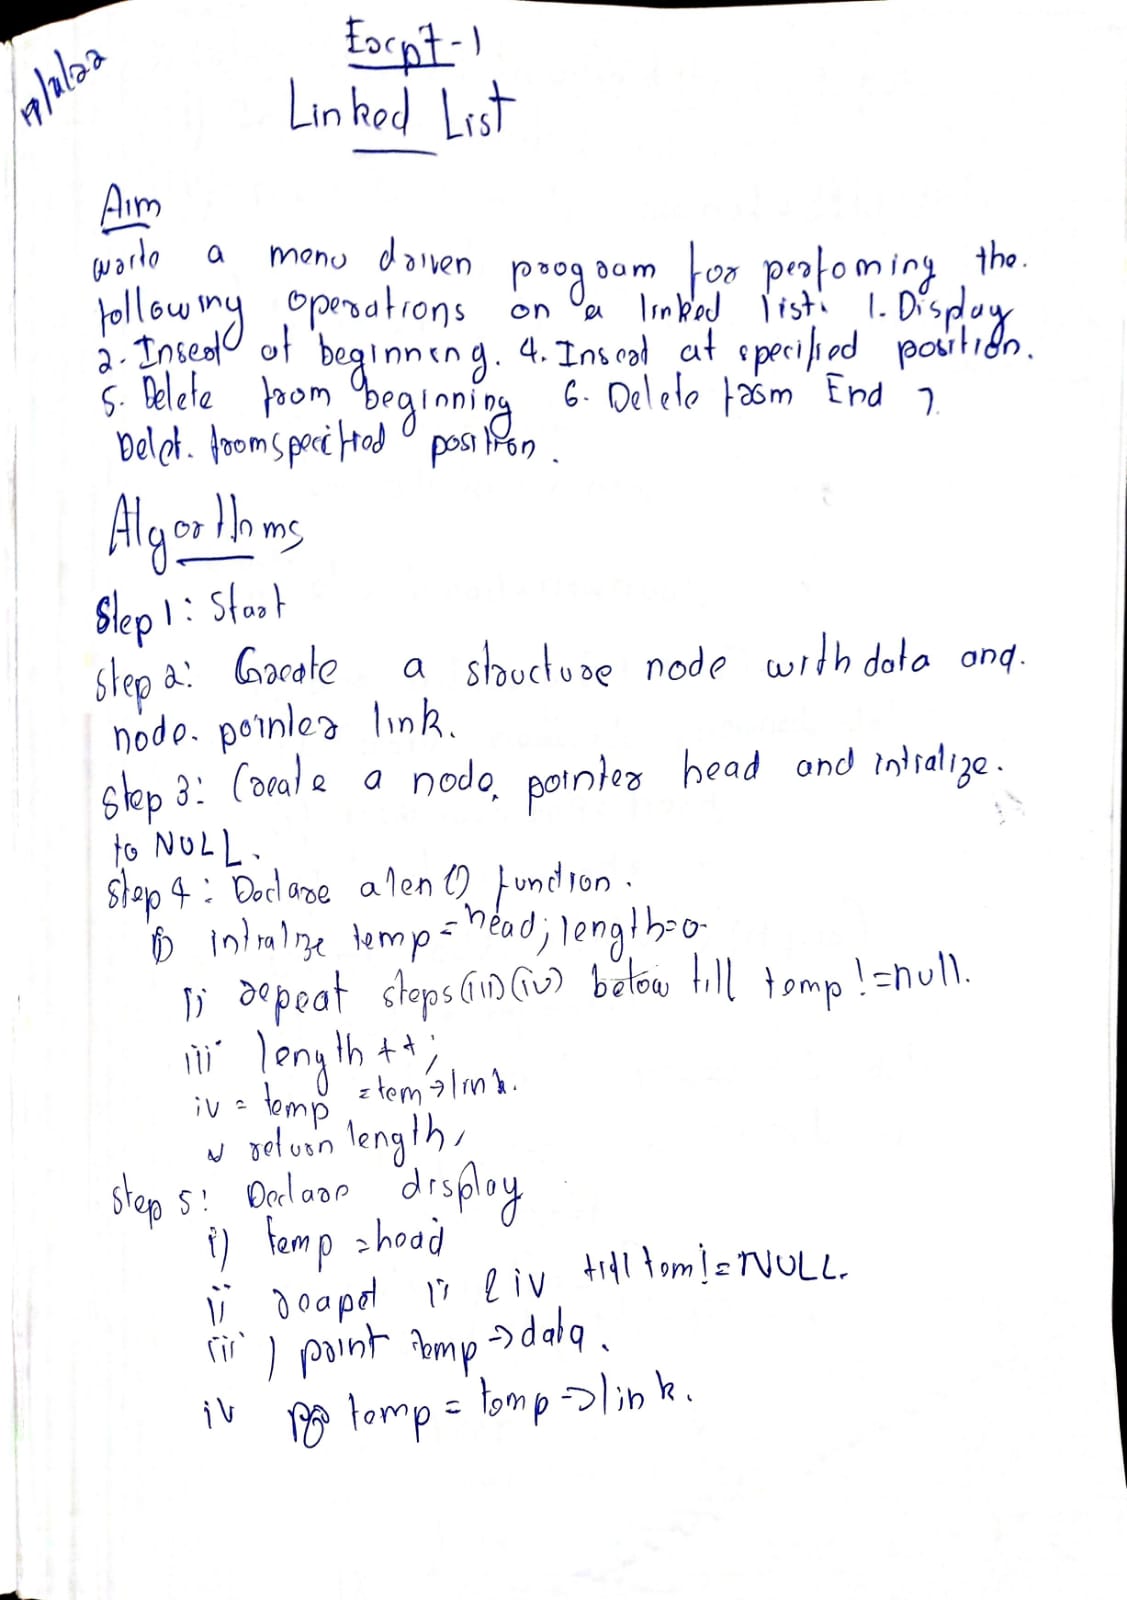 Expt-1
Linked List
Aim
write a menu driven program for perfoming the.
following operations on a linked list. 1. Display
2. Insert at beginning. 4. Insert at specified position.
5. Delete from beginning 6. Delete from End 7.
Delet. from specified position.
Algorithms
Step 1: Start
Step 2: Create a structure node with data and.
node. pointer link.
Step 3: Create a node, pointer head and intialize.
to NULL.
Step 4: Declare a len () function.
i) intialize temp = head; length=0
ii repeat steps (iii) (iv) below till temp != null.
iii length ++;
iv = temp = tem → link.
v return length,
Step 5: Declare display
i) temp = head
ii reapet iii & iv till tem != NULL.
iii) print temp → data.
iv temp = temp → link.